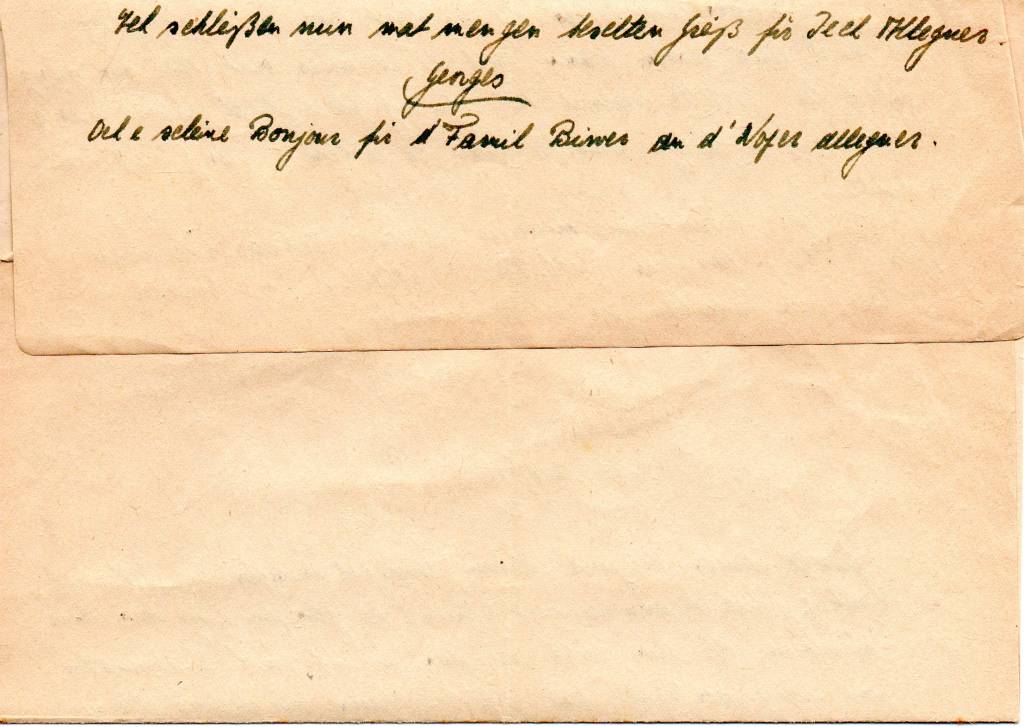 Ech schleißen nun mat mengen beschten Gréiß fir Iech Alleguer.
Georges
Och e schéine Bonjour fir d'Famil Biwer an d' Noper alleguer.